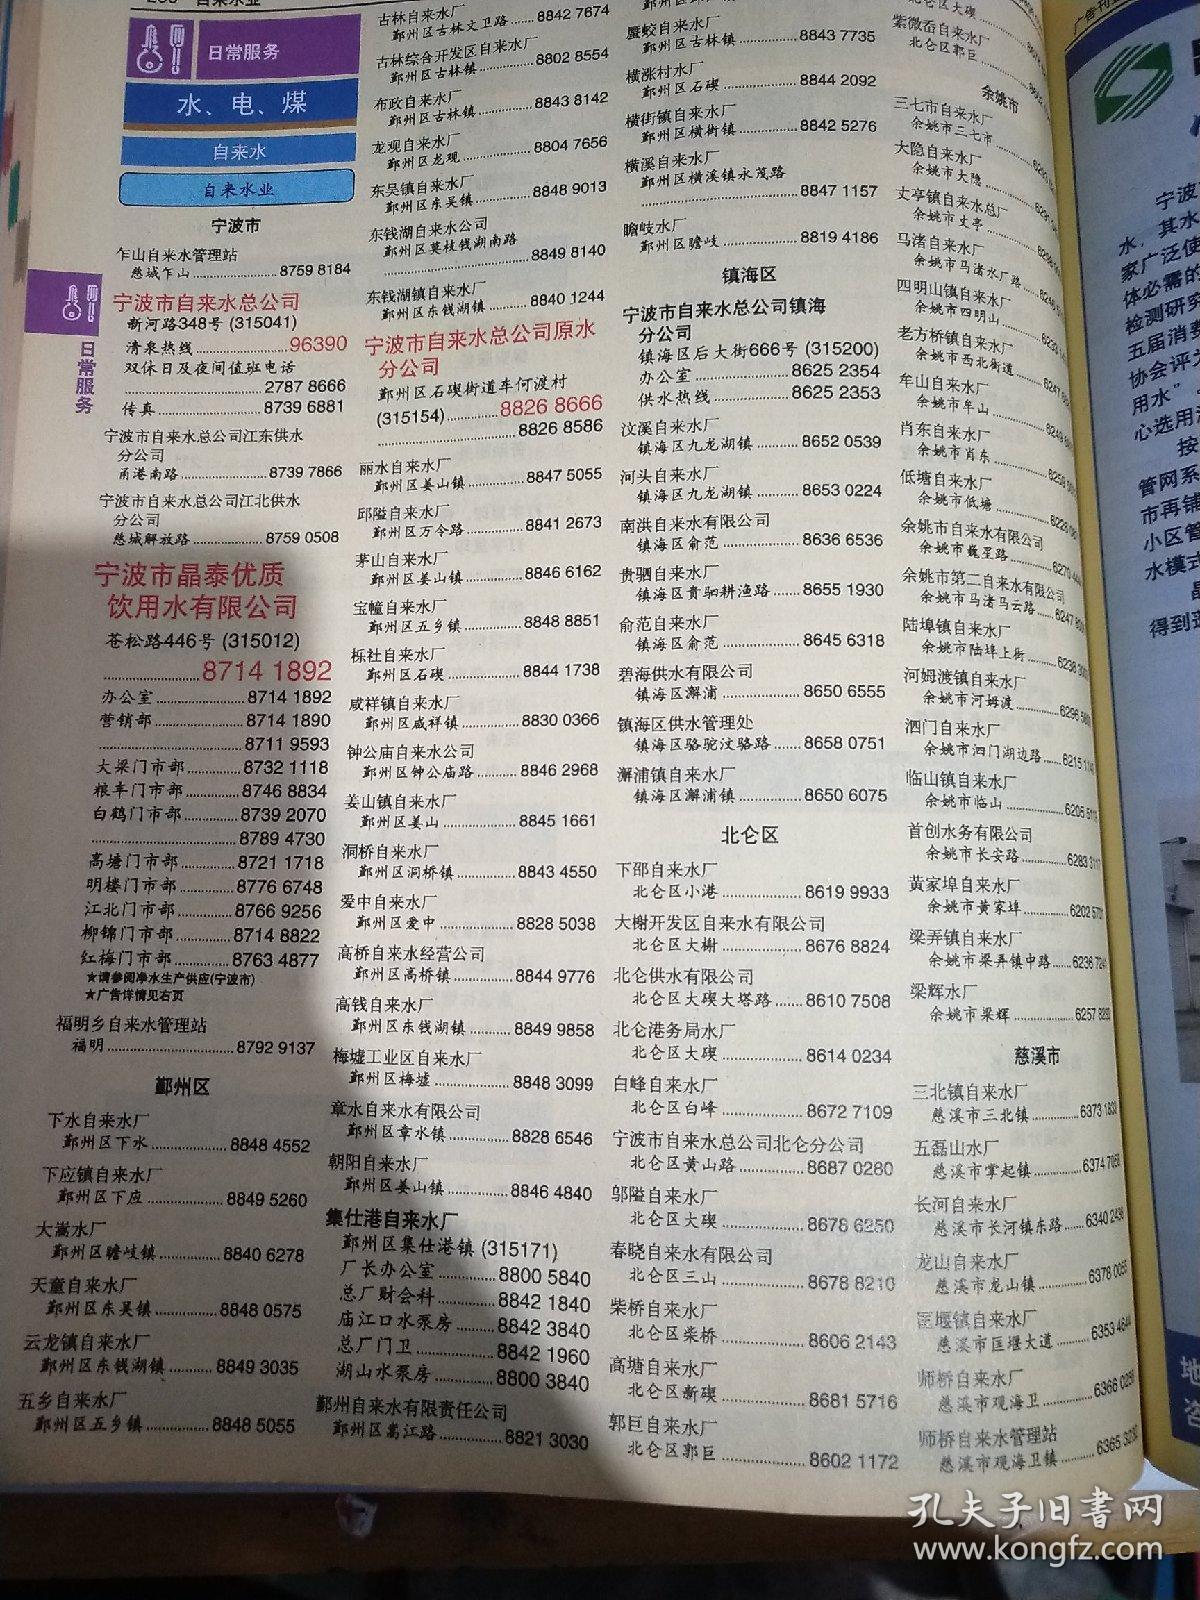 自来水业
日常服务
水、电、煤
自来水
自来水业
日常服务
宁波市
乍山自来水管理站
慈城乍山 8759 8184
宁波市自来水总公司
新河路348号 (315041)
清泉热线 96390
双休日及夜间值班电话
2787 8666
传真 8739 6881
宁波市自来水总公司江东供水
分公司
甬港南路 8739 7866
宁波市自来水总公司江北供水
分公司
慈城解放路 8759 0508
宁波市晶泰优质
饮用水有限公司
苍松路446号 (315012)
8714 1892
办公室 8714 1892
营销部 8714 1890
8711 9593
大梁门市部 8732 1118
粮丰门市部 8746 8834
白鹤门市部 8739 2070
8789 4730
高塘门市部 8721 1718
明楼门市部 8776 6748
江北门市部 8766 9256
柳锦门市部 8714 8822
红梅门市部 8763 4877
★请参阅净水生产供应(宁波市)
★广告详情见右页
福明乡自来水管理站
福明 8792 9137
鄞州区
下水自来水厂
鄞州区下水 8848 4552
下应镇自来水厂
鄞州区下应 8849 5260
大嵩水厂
鄞州区瞻岐镇 8840 6278
天童自来水厂
鄞州区东吴镇 8848 0575
云龙镇自来水厂
鄞州区东钱湖镇 8849 3035
五乡自来水厂
鄞州区五乡镇 8848 5055
古林自来水厂
鄞州区古林文卫路 8842 7674
古林综合开发区自来水厂
鄞州区古林镇 8802 8554
布政自来水厂
鄞州区古林镇 8843 8142
龙观自来水厂
鄞州区龙观 8804 7656
东吴镇自来水厂
鄞州区东吴镇 8848 9013
东钱湖自来水公司
鄞州区莫枝钱湖南路
8849 8140
东钱湖镇自来水厂
鄞州区东钱湖镇 8840 1244
宁波市自来水总公司原水
分公司
鄞州区石碶街道车何渡村
(315154) 8826 8666
8826 8586
丽水自来水厂
鄞州区姜山镇 8847 5055
邱隘自来水厂
鄞州区万令路 8841 2673
茅山自来水厂
鄞州区姜山镇 8846 6162
宝幢自来水厂
鄞州区五乡镇 8848 8851
栎社自来水厂
鄞州区石碶 8844 1738
咸祥镇自来水厂
鄞州区咸祥镇 8830 0366
钟公庙自来水公司
鄞州区钟公庙路 8846 2968
姜山镇自来水厂
鄞州区姜山 8845 1661
洞桥自来水厂
鄞州区洞桥镇 8843 4550
爱中自来水厂
鄞州区爱中 8828 5038
高桥自来水经营公司
鄞州区高桥镇 8844 9776
高钱自来水厂
鄞州区东钱湖镇 8849 9858
梅墟工业区自来水厂
鄞州区梅墟 8848 3099
章水自来水有限公司
鄞州区章水镇 8828 6546
朝阳自来水厂
鄞州区姜山镇 8846 4840
集仕港自来水厂
鄞州区集仕港镇 (315171)
厂长办公室 8800 5840
总厂财会科 8842 1840
庙江口水泵房 8842 3840
总厂门卫 8842 1960
湖山水泵房 8800 3840
鄞州自来水有限责任公司
鄞州区嵩江路 8821 3030
蜃蛟自来水厂
鄞州区古林镇 8843 7735
横涨村水厂
鄞州区石碶 8844 2092
横街镇自来水厂
鄞州区横街镇 8842 5276
横溪自来水厂
鄞州区横溪镇永茂路
8847 1157
瞻岐水厂
鄞州区瞻岐 8819 4186
镇海区
宁波市自来水总公司镇海
分公司
镇海区后大街666号 (315200)
办公室 8625 2354
供水热线 8625 2353
汶溪自来水厂
镇海区九龙湖镇 8652 0539
河头自来水厂
镇海区九龙湖镇 8653 0224
南洪自来水有限公司
镇海区俞范 8636 6536
贵驷自来水厂
镇海区贵驷耕渔路 8655 1930
俞范自来水厂
镇海区俞范 8645 6318
碧海供水有限公司
镇海区澥浦 8650 6555
镇海区供水管理处
镇海区骆驼汶骆路 8658 0751
澥浦镇自来水厂
镇海区澥浦镇 8650 6075
北仑区
下邵自来水厂
北仑区小港 8619 9933
大榭开发区自来水有限公司
北仑区大榭 8676 8824
北仑供水有限公司
北仑区大碶大塔路 8610 7508
北仑港务局水厂
北仑区大碶 8614 0234
白峰自来水厂
北仑区白峰 8672 7109
宁波市自来水总公司北仑分公司
北仑区黄山路 8687 0280
邬隘自来水厂
北仑区大碶 8678 6250
春晓自来水有限公司
北仑区三山 8678 8210
柴桥自来水厂
北仑区柴桥 8606 2143
高塘自来水厂
北仑区新碶 8681 5716
郭巨自来水厂
北仑区郭巨 8602 1172
北仑区大碶
紫微岙自来水厂
北仑区郭巨
余姚市
三七市自来水厂
余姚市三七市
大隐自来水厂
余姚市大隐
丈亭镇自来水总厂
余姚市丈亭
马渚自来水厂
余姚市马渚水厂路
四明山镇自来水厂
余姚市四明山
老方桥镇自来水厂
余姚市西北街道
牟山自来水厂
余姚市牟山
肖东自来水厂
余姚市肖东
低塘自来水厂
余姚市低塘
余姚市自来水有限公司
余姚市巍星路
余姚市第二自来水有限公司
余姚市马渚马云路
陆埠镇自来水厂
余姚市陆埠上街
河姆渡镇自来水厂
余姚市河姆渡
泗门自来水厂
余姚市泗门湖边路
临山镇自来水厂
余姚市临山
首创水务有限公司
余姚市长安路
黄家埠自来水厂
余姚市黄家埠
梁弄镇自来水厂
余姚市梁弄镇中路
梁辉水厂
余姚市梁辉
慈溪市
三北镇自来水厂
慈溪市三北镇
五磊山水厂
慈溪市掌起镇
长河自来水厂
慈溪市长河镇东路
龙山自来水厂
慈溪市龙山镇
匡堰镇自来水厂
慈溪市匡堰大道
师桥自来水厂
慈溪市观海卫
师桥自来水管理站
慈溪市观海卫镇
宁波
水，其水
家广泛使
体必需的
检测研究
五届消费
协会评为
用水”
心选用
按
管网系
市再铺
小区管
水模式
得到
孔夫子旧书网
www.kongfz.com